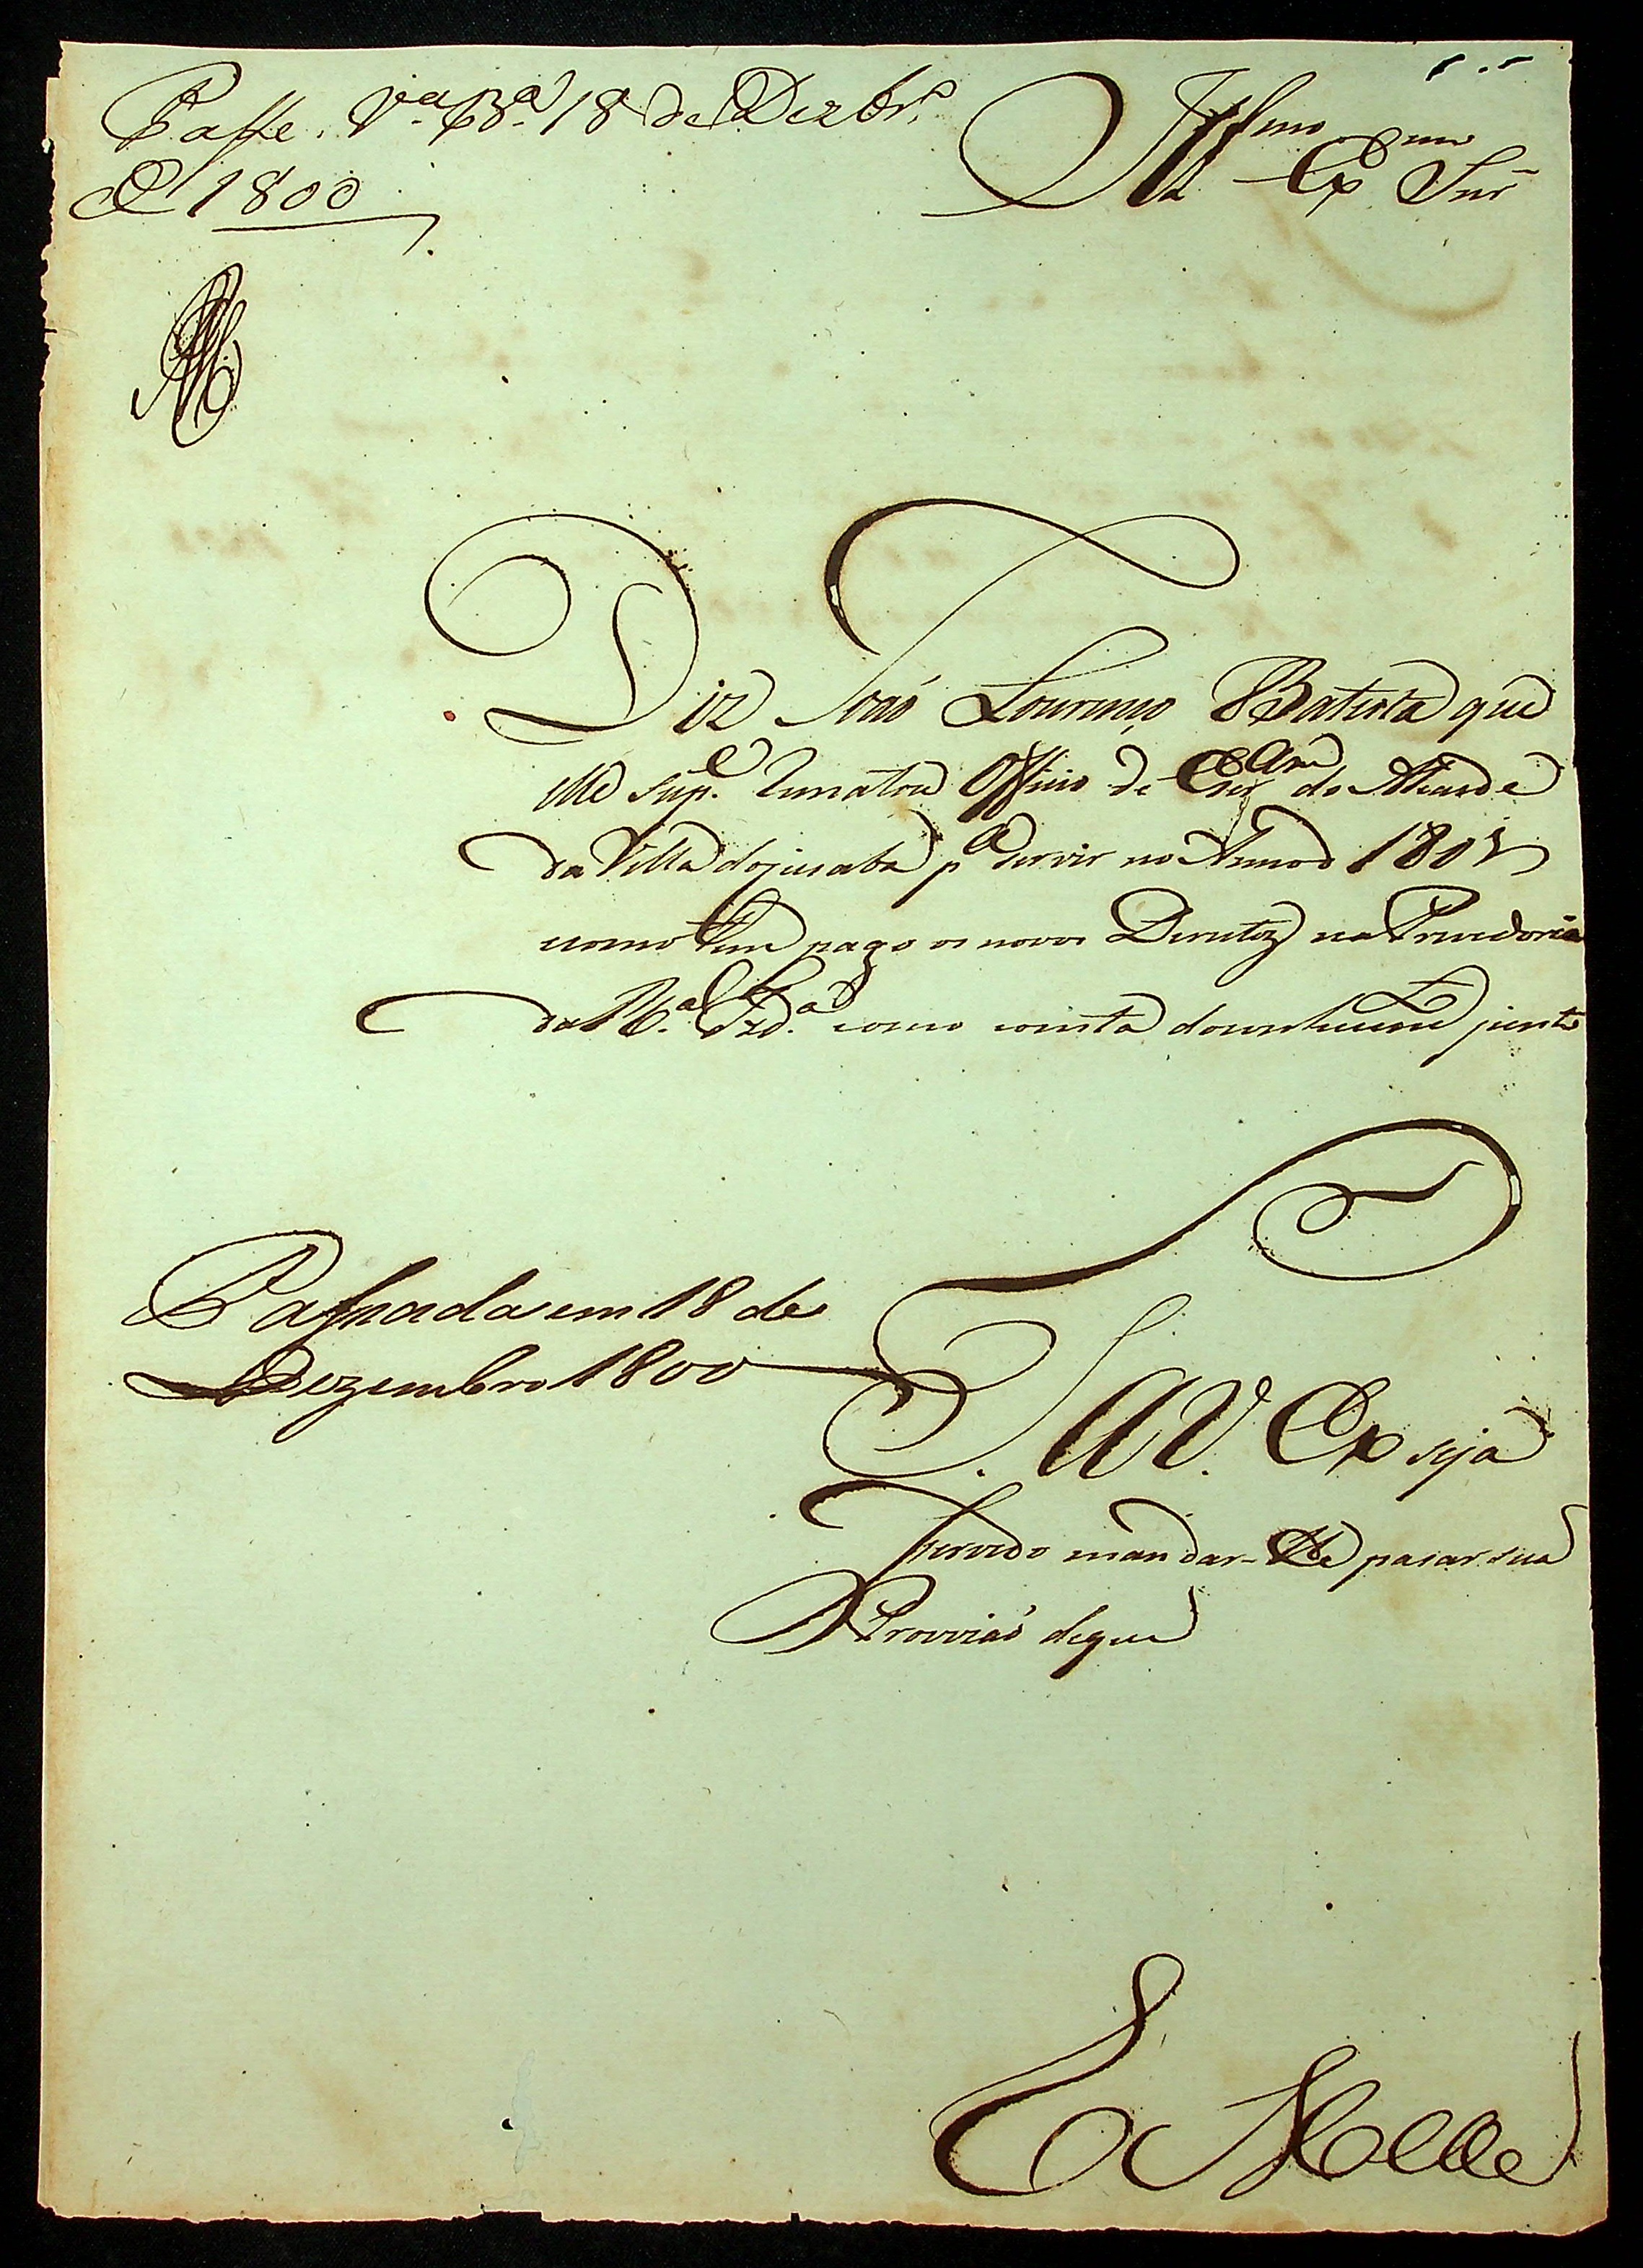 Passe. V.ª B.ª 18 de Dezbr.º
D 1800
Ill.mo Ex.mo Snr
Diz Joaõ Lourenço Batista que
elle sup.e Rematou Officio de Escram do Alcaide
da Villa do p.a servir no Anno d 1801
como tem pago os novos Direitos na Provedoria
da R.al Fzd.a como consta do conhecim.to junto
Passada em 18 de
Dezembro 1800
P. A V. Ex seja
servido mandar-lhe pasar sua
Provizaõ de que
E R Mce